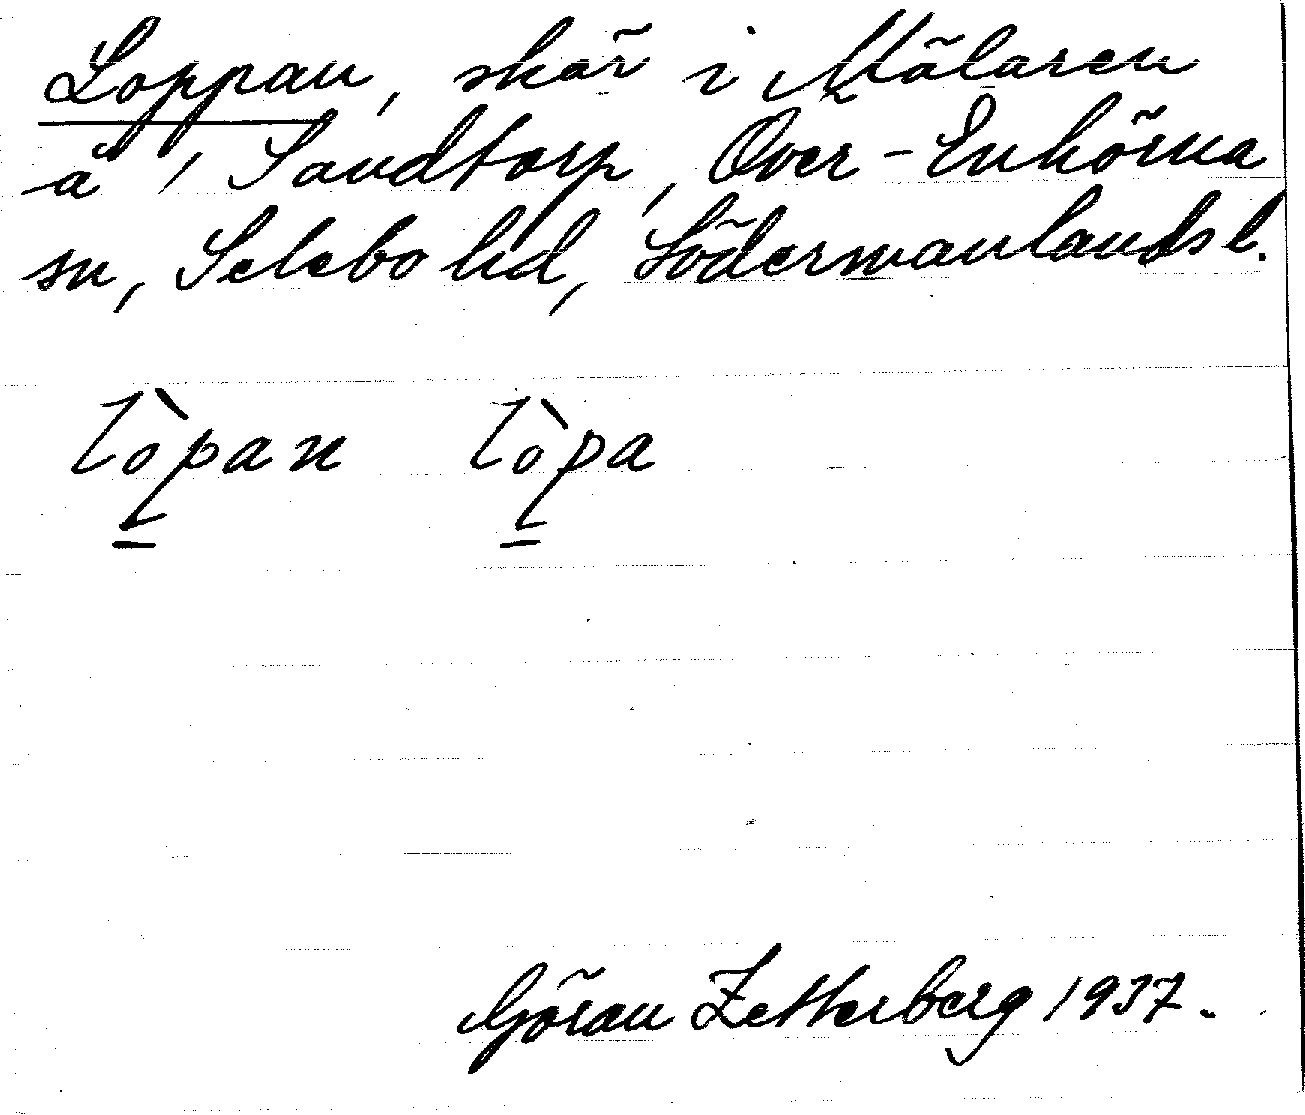 Loppan, skär i Mälaren
å 1 Sandtorp, Över-Enhörna
sn, Selebo hd, Södermanlands l.
lòpan lòpa
Göran Zetterberg 1937.